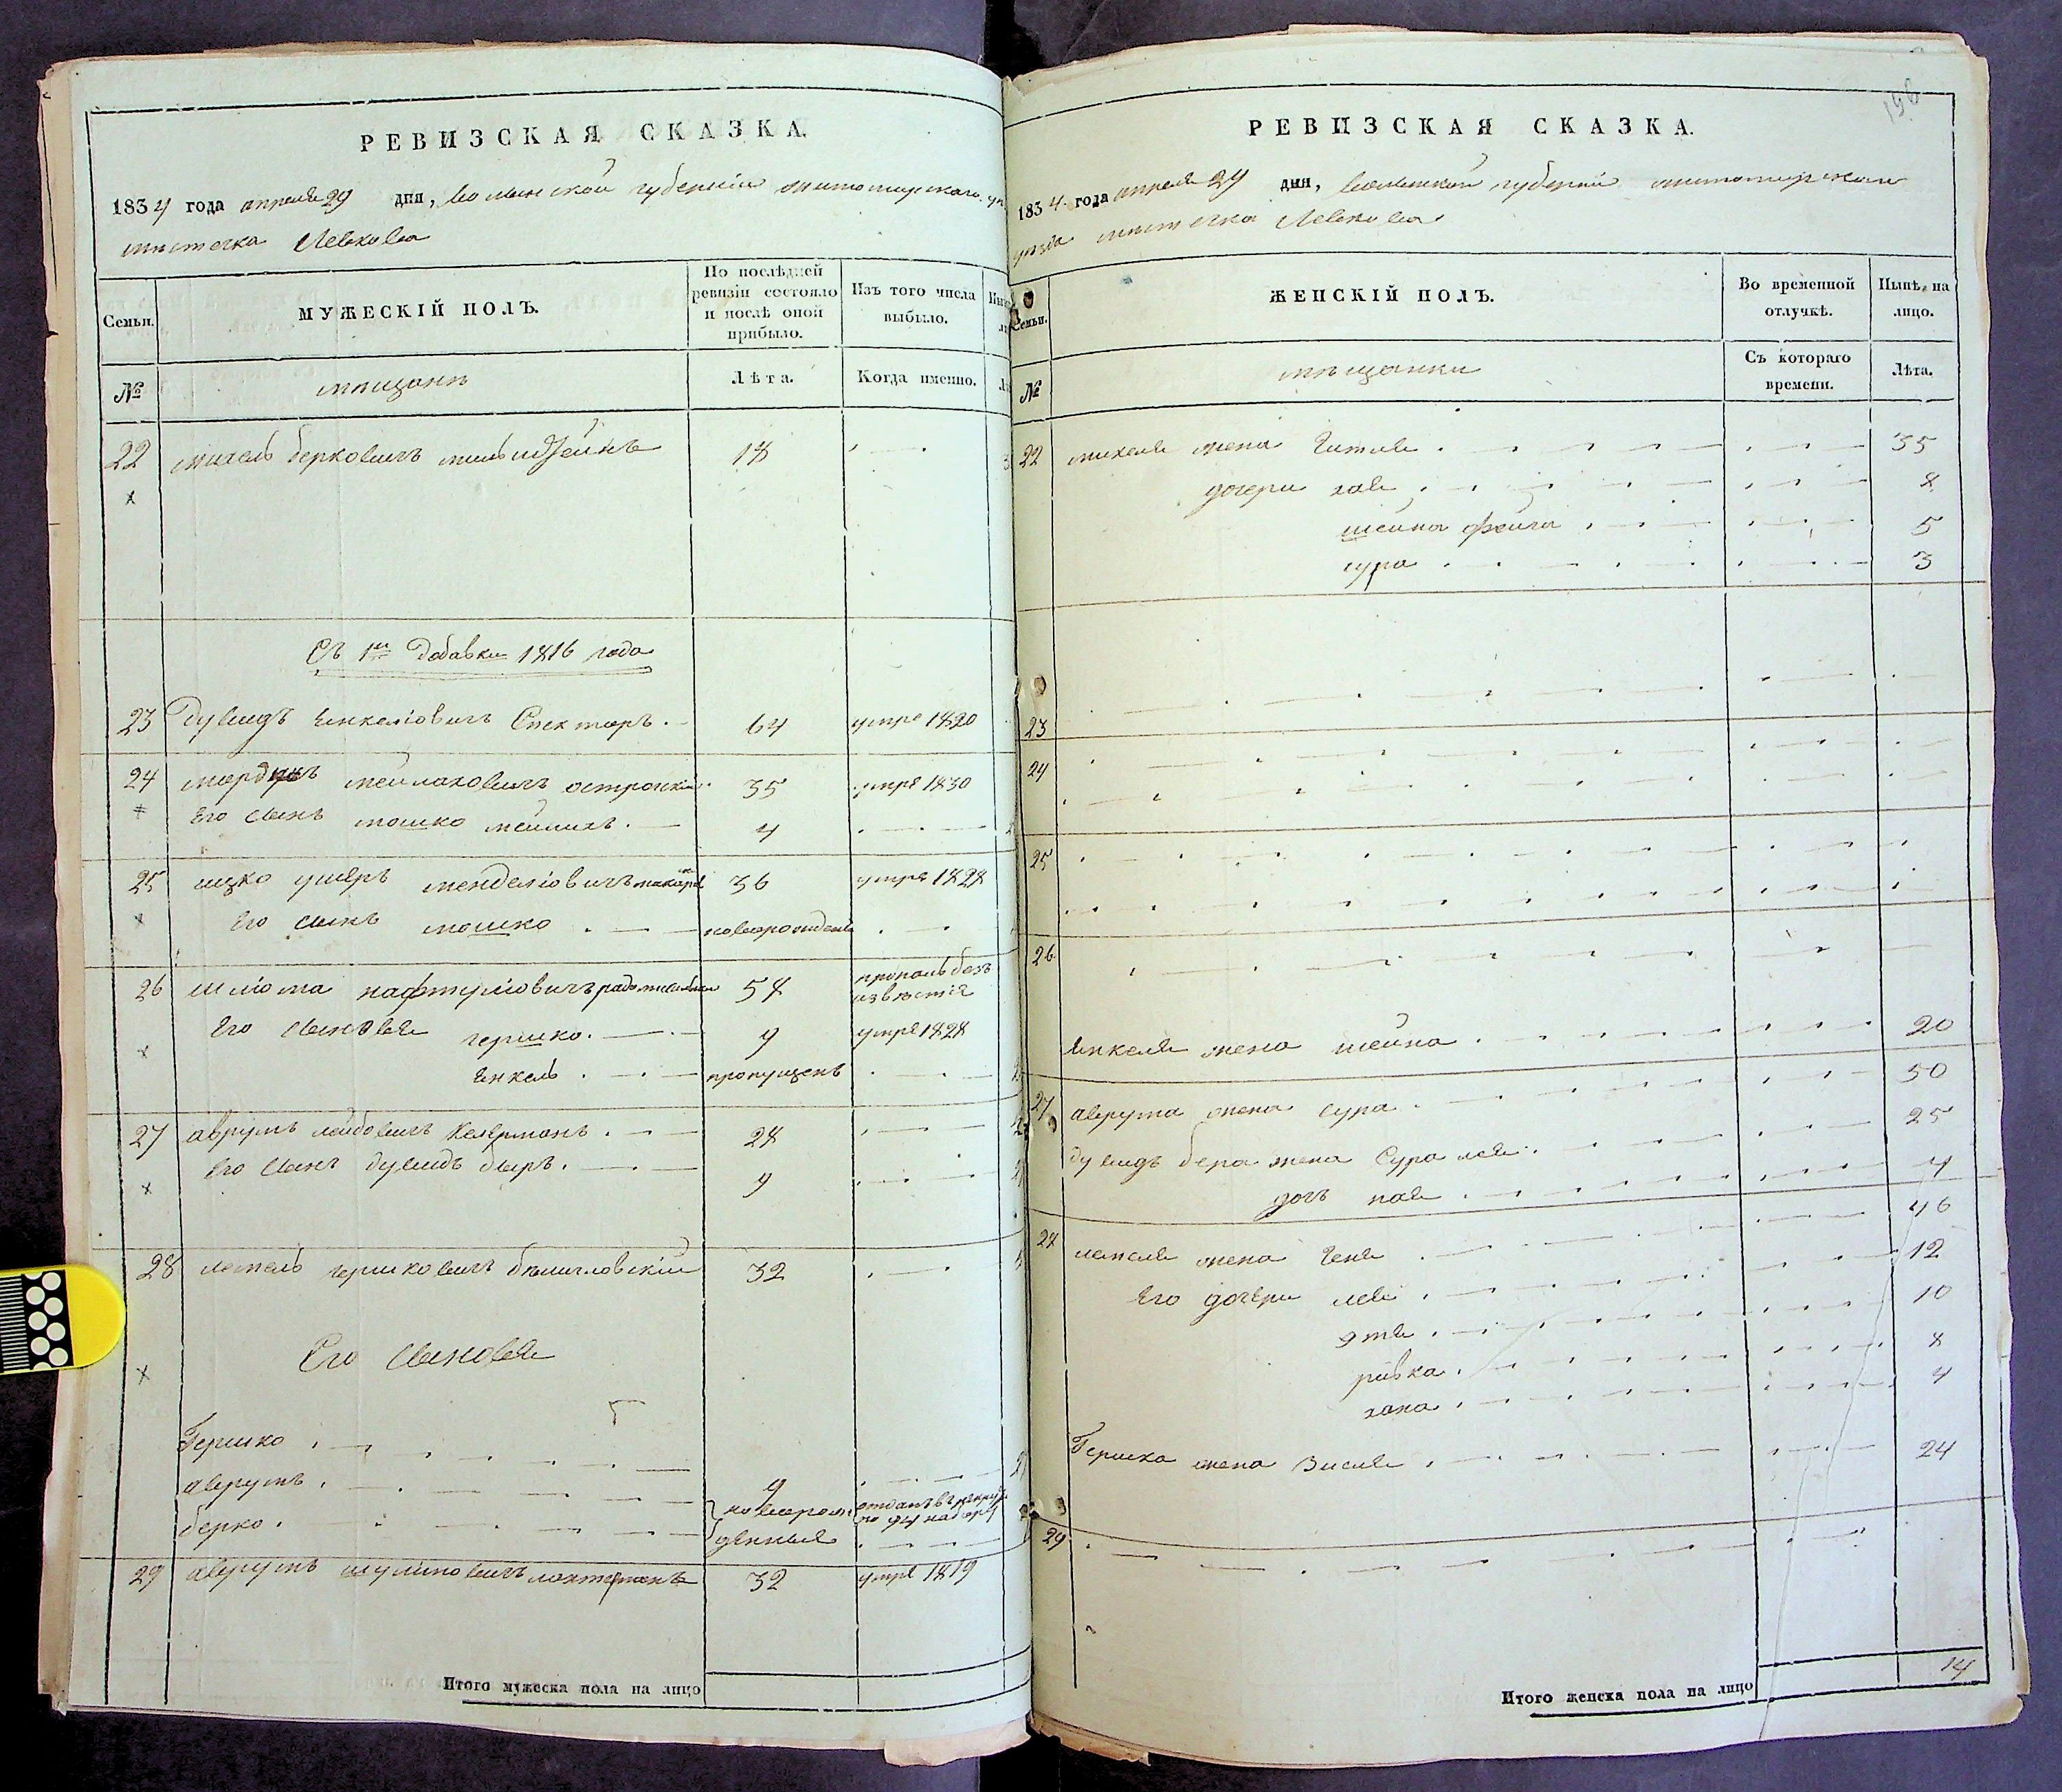 РЕВИЗСКАЯ СКАЗКА.
1834 года апреля 29 дня, волынской губернии житомирскаго
мистечка Левкова
Семьи. МУЖЕСКІЙ ПОЛЪ. По послѣдней ревизіи состояло и послѣ оной прибыло. Изъ того числа выбыло.
№ мещане Лѣта. Когда именно.
22 михель берковичъ 18
Съ 1й добавки 1816 года
23 дувидъ енкеліовичъ Спекторъ 64 умре 1820
24 мейлаховичъ острогскій 35 умре 1830
его сынъ мошко мейлихъ 4
25 ицко ушеръ менделіовичъ 36 умре 1828
его сынъ мошко новорожденъ
26 шліома нафтуліовичъ 58 пропалъ безъ извѣстія
его сыновья гершко 9 умре 1828
енкель пропущенъ
27 аврумъ лейбовичъ Келерманъ 28
его сынъ дувидъ беръ 9
28 гершковичъ 32
Его сыновья
Гершко 9
аврумъ новорожденныя отданъ в рекруты по 94 набору
берко
29 аврумъ шулимовичъ 32 умре 1819
Итого мужеска пола на лицо
196
РЕВИЗСКАЯ СКАЗКА.
1834 года апреля 29 дня, волынской губерніи житомирскаго
уезда мистечка Левкова
Семьи. ЖЕНСКІЙ ПОЛЪ. Во временной отлучкѣ. Нынѣ на лицо.
№ мещанки Съ котораго времени. Лѣта.
22 михеля жена Гитля 35
дочери хая 8
шейна фейга 5
сура 3
23
24
25
26
енкеля жена шейна 20
27 аврума жена сура 50
дувидъ бера жена Сура лея 25
дочъ хая 4
28 жена Геня 46
его дочери лея 12
этя 10
ривка 8
хана 4
Гершка жена Зисля 24
29
Итого женска пола на лицо 14